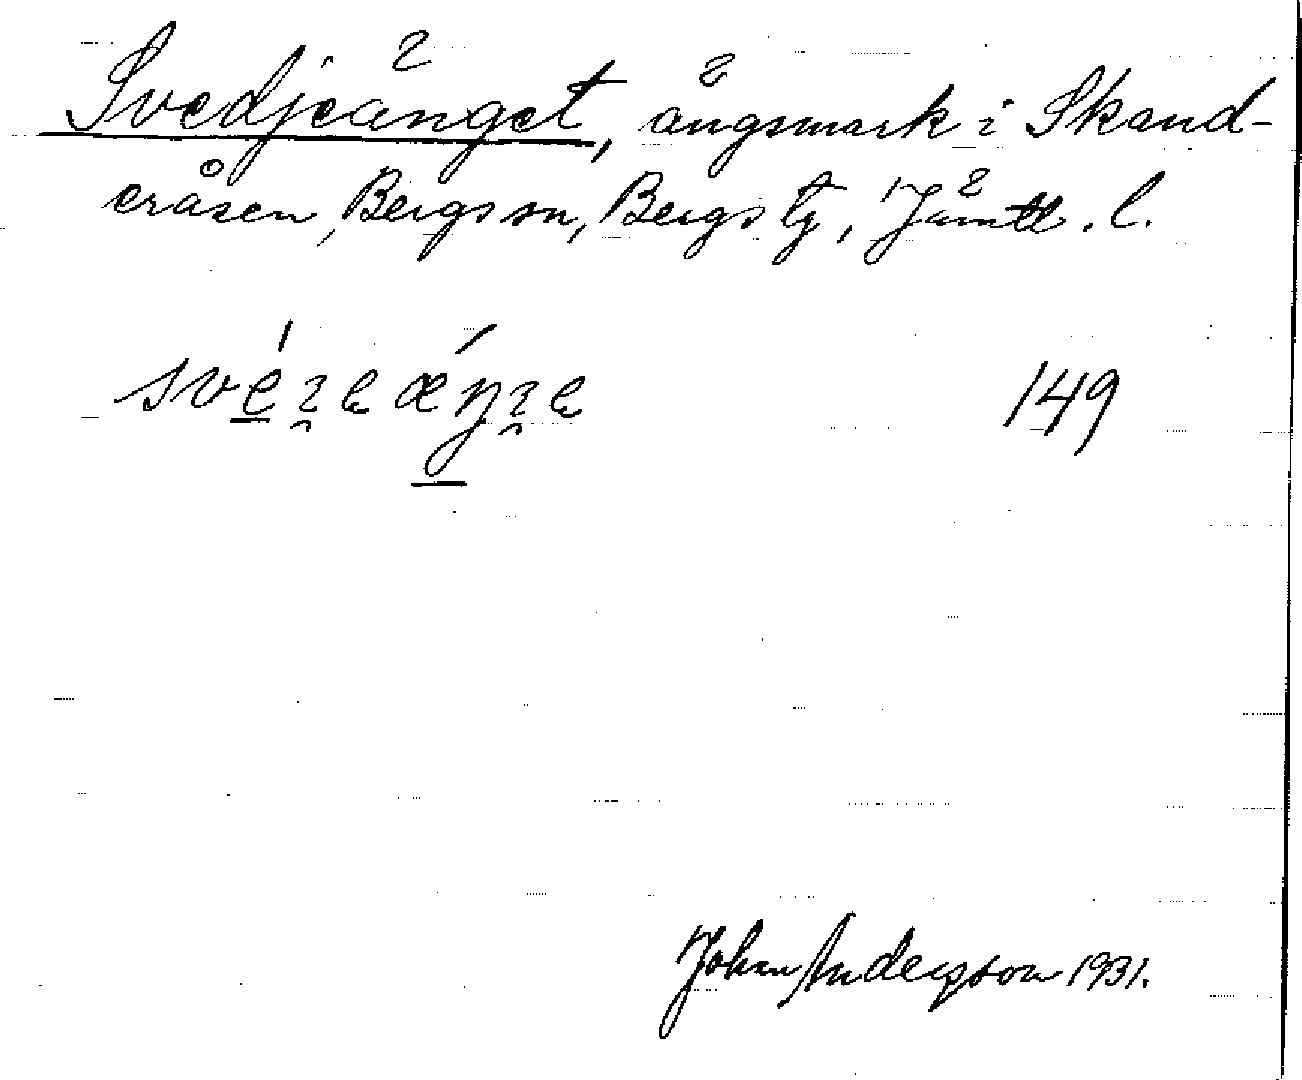 Svedjeänget, ängsmark i Skand-
eråsen, Bergs sn, Bergs tg, Jämtl. l.
149
John Andersson 1931.